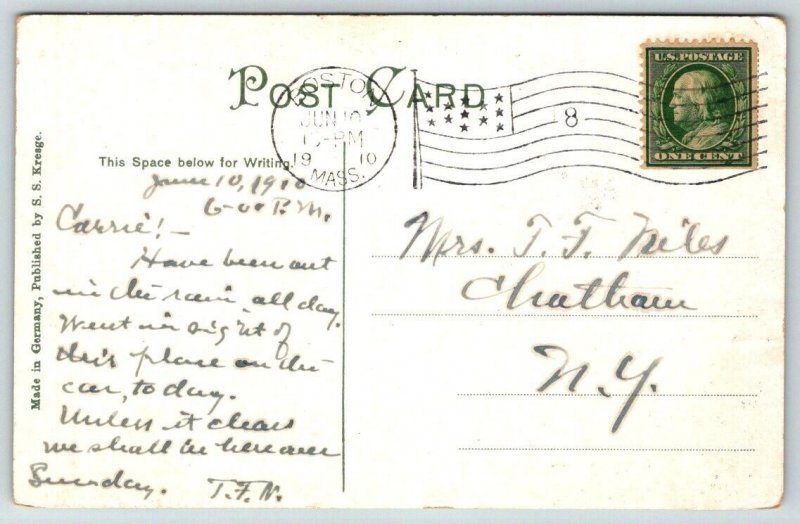 POST CARD
BOSTON
JUN 10
PM
19 10
MASS.
8
U.S. POSTAGE
ONE CENT
Made in Germany, Published by S. S. Kresge.
This Space below for Writing.
June 10, 1910
6-00 P.M.
Carrie! -
Have been out
in the rain, all day.
Went in sight of
this place on the
car, to day.
Unless it clears
we shall be here over
Sunday. T.F.N.
Mrs. T. F. Niles
Chatham
N.Y.